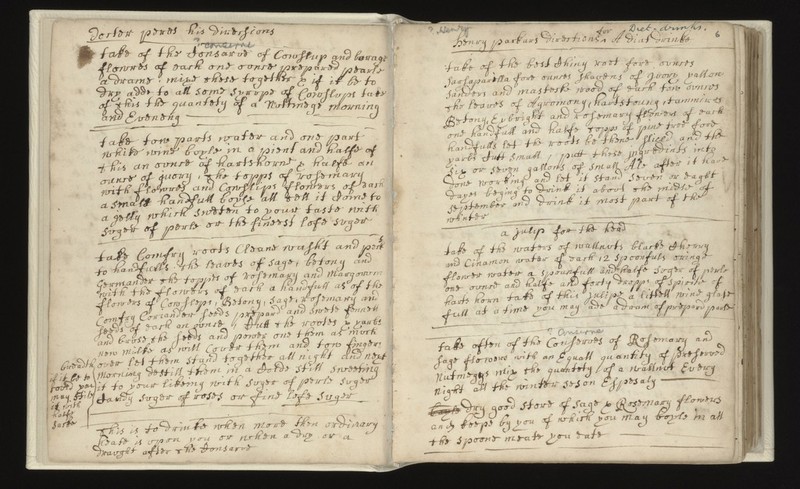 Docter peres his directions
conserve
take of the Consarve of Cowslup and borage
flowres of each one ounce prepared pearle
a drame: mixe these together & if it be to
dry adde to all some syrrope of Cowslops take
of this the quantety of a Nuttmege morning
and Evening
take tow parts water and one part
white wine boyle in a pient and halfe of
this an ounce of hartshorne & halfe an
ounce of ivory, the topps of rosemary
with flowres and Cowslips flowres of each
a small handfull boyle all tell it Come to
a gelly which sweten to your taste with
suger of perle or the finest lofe suger
take Comfry roots Cleane washt and
to handfulls the leaves of sage, betony and
Germander the topps of rosemary and
with the flowers of each a handfull as of the
flowers of Cowslops, Betony, sage, rosemary and
Comfry Coriander seeds prepard and swete fennell
seeds of each an ounce, Cutt the rootes & yarbs
and bruse the seeds and power one them as much
new milke as will Cover them and tow fingers
over let them stand together all night and next
morning destill them in a Colde still sweeting
it to your likeing with suger of perle suger
Candy suger of roses or fine lofe suger
if it be to
Could you
may still
of with
halfe
sacke
this is to drinke when more then ordinary
heate is upon you or when a dry or a
draught after the Consarve
Henry
for Diet-drinks.
6
Henry parkurs directions A diat drinke
take of the best Chiny root fore ounces
sarsaparella fore ounces shavens of Ivory yallow
sanders and masteke wood of each tow ounces
the leaves of Agromony, hartstoung,
Betony, Eybright and rosemary flowers of each
one handfull and halfe topps of pine tree fore
handfulls let the roots be thene slised and the
yarbs Cutt small, putt these ingrediants into
six or seven gallons of small Ale after it have
done working and let it stand seven or eaight
dayes beging to drink it about the midle of
september and drink it most part of the
winter
a julip for the head
take of the waters of wallnuts blacke Cherry
and Cinamon water of each 12 spoonfuls oringe
flower water a spounfull and halfe suger of perle
one ounce and halfe and forty dropps of spirite of
harts horn take of this julipe a littell wine glase
full at a time you may ade a dram of prepared perle
? Conserve
take often of the Conserves of Rosemary and
sage flowers with an Equall quantity of preserved
Nutmegs mix the quantety of a wallnut Every
night all the winter seson Espesaly
dry good store of sage & Rosemary flowers
and keepe by you of which you may boyle in all
the spoone meate you eate